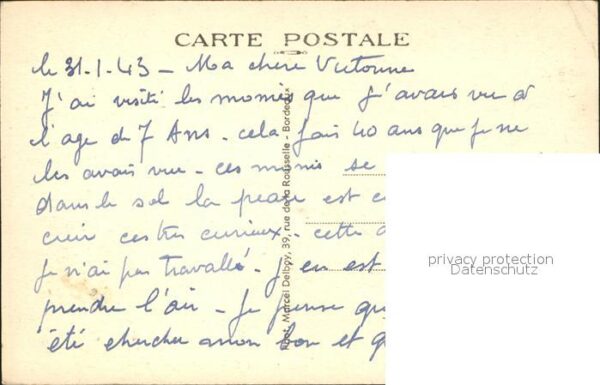 CARTE POSTALE
le 31-1-43 - Ma chère Victorine
J'ai visité les momies que j'avais vu à
l'age de 7 Ans - cela fais 40 ans que je ne
les avais vue - ces momis se
dans le sol la peau est c
cuir ces tres curieux - cette
je n'ai pas travaillé - j en est
prendre l'air - Je pense qu
été chercher mon bon et q
Phot. Marcel Delboy, 39, rue de la Rousselle - Bordeaux
privacy protection
Datenschutz